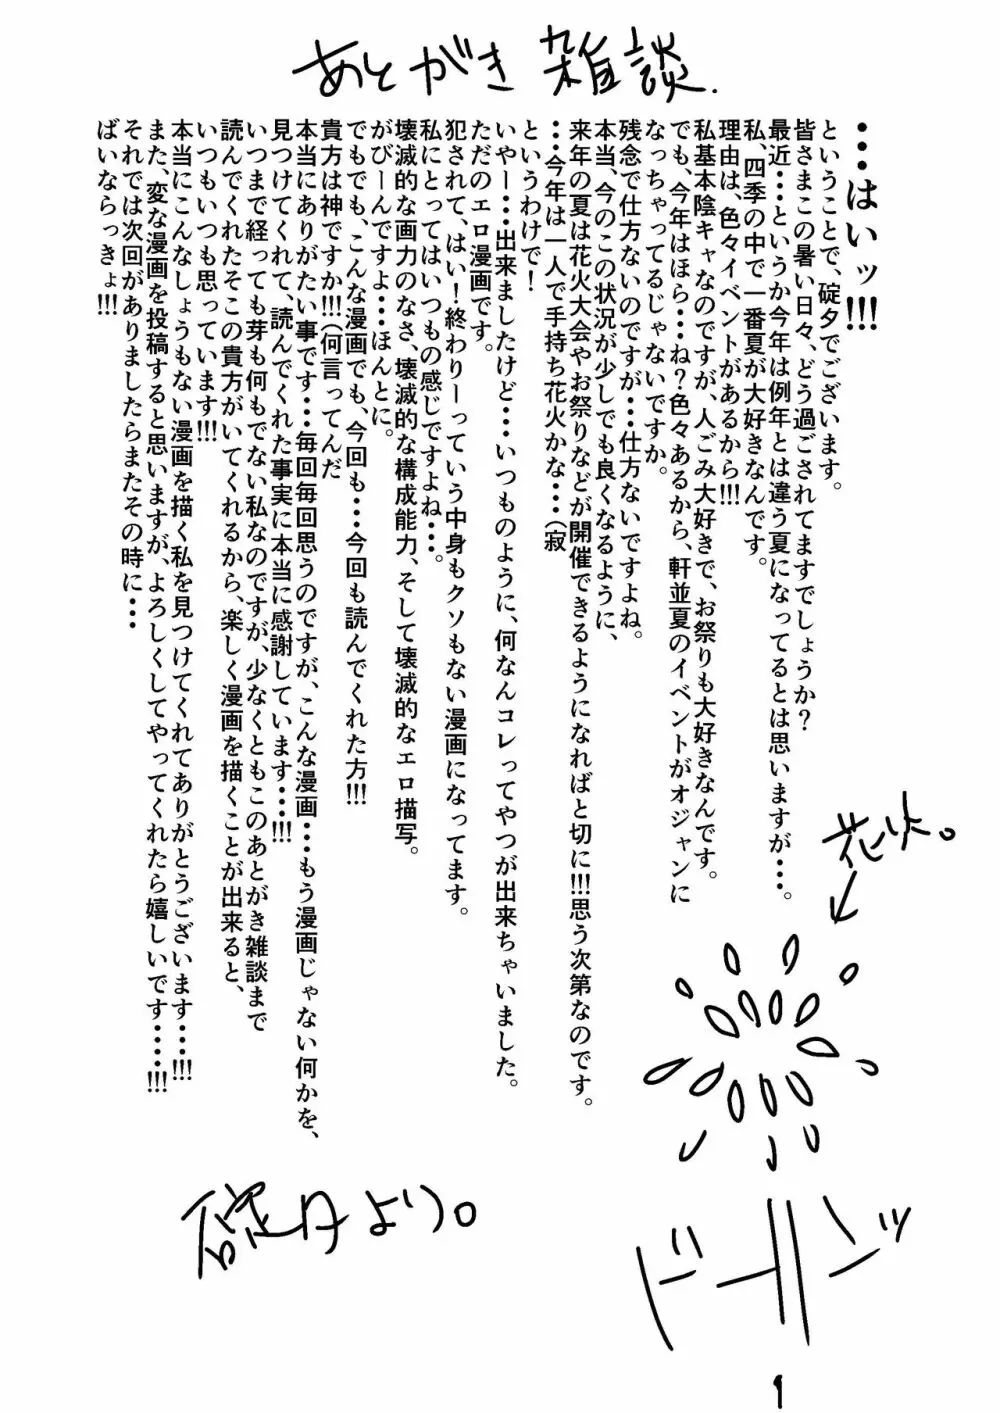 あとがき雑談.
・・・はいッ!!!
ということで、碇夕でございます。
皆さまこの暑い日々、どう過ごされてますでしょうか?
最近・・・というか今年は例年とは違う夏になってるとは思いますが・・・。
私、四季の中で一番夏が大好きなんです。
理由は、色々イベントがあるから!!!
私基本陰キャなのですが、人ごみ大好きで、お祭りも大好きなんです。
でも、今年はほら・・・ね?色々あるから、軒並夏のイベントがオジャンに
なっちゃってるじゃないですか。
残念で仕方ないのですが・・・仕方ないですよね。
本当、今のこの状況が少しでも良くなるように、
来年の夏は花火大会やお祭りなどが開催できるようになればと切に!!!思う次第なのです。
・・・今年は一人で手持ち花火かな・・・(寂
というわけで!
いやー・・・出来ましたけど・・・いつものように、何なんコレってやつが出来ちゃいました。
ただのエロ漫画です。
犯されて、はい!終わりーっていう中身もクソもない漫画になってます。
私にとってはいつもの感じですよね・・・。
壊滅的な画力のなさ、壊滅的な構成能力、そして壊滅的なエロ描写。
がびーんですよ・・・ほんとに。
でもでも、こんな漫画でも、今回も・・・今回も読んでくれた方!!!
貴方は神ですか!!!(何言ってんだ
本当にありがたい事です・・・毎回毎回思うのですが、こんな漫画・・・もう漫画じゃない何かを、
見つけてくれて、読んでくれた事実に本当に感謝しています・・・!!!
いつまで経っても芽も何もでない私なのですが、少なくともこのあとがき雑談まで
読んでくれたそこの貴方がいてくれるから、楽しく漫画を描くことが出来ると、
いつもいつも思っています!!!
本当にこんなしょうもない漫画を描く私を見つけてくれてありがとうございます・・・!!!
また、変な漫画を投稿すると思いますが、よろしくしてやってくれたら嬉しいです・・・・!!!
それでは次回がありましたらまたその時に・・・
ばいならっきょ!!!
花火。
碇夕より。
ドーンッ